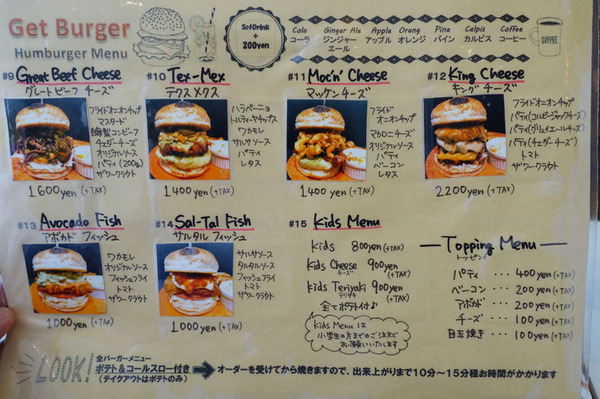 Get Burger
Humburger Menu
Set Drink
+
200yen
Cola コーラ
Ginger Ale ジンジャーエール
Apple アップル
Orang オレンジ
Pine パイン
Calpis カルピス
Coffee コーヒー
COFFEE
#9 Great Beef Cheese
グレートビーフ チーズ
フライドオニオンチップ
マスタード
自家製コンビーフ
チェダーチーズ
オリジナルソース
パティ(200g)
ザワークラウト
1600yen (+TAX)
#10 Tex-Mex
テクスメクス
ハラペーニョ
トルティーヤチップス
ワカモレ
サルサソース
パティ
レタス
1400yen (+TAX)
#11 Moc'n' Cheese
マッケンチーズ
フライドオニオン
マカロニチーズ
オリジナルソース
パティ
ベーコン
レタス
1400yen (+TAX)
#12 King Cheese
キングチーズ
フライドオニオンチップ
パティ(コルビージャックチーズ)
パティ(グリュイエールチーズ)
パティ(チェダーチーズ)
トマト
ザワークラウト
2200yen (+TAX)
#13 Avocado Fish
アボカド フィッシュ
ワカモレ
オリジナルソース
フィッシュフライ
トマト
ザワークラウト
1000yen (+TAX)
#14 Sal-Tal Fish
サルタル フィッシュ
サルサソース
タルタルソース
フィッシュフライ
トマト
ザワークラウト
1000yen (+TAX)
#15 Kids Menu
Kids 800yen (+TAX)
Kids Cheese 900yen (+TAX)
チーズ
Kids Teriyaki 900yen (+TAX)
テリヤキ
全てポテト付♪
Kids Menu は
小学生の方までのご注文で
お願いいたします
Topping Menu
トッピング
パティ ... 400yen (+TAX)
ベーコン ... 200yen (+TAX)
アボカド ... 200yen (+TAX)
チーズ ... 100yen (+TAX)
目玉焼き ... 100yen (+TAX)
LOOK!
全バーガーメニュー
ポテト&コールスロー付き
(テイクアウトはポテトのみ)
オーダーを受けてから焼きますので、出来上がりまで10分〜15分程お時間がかかります